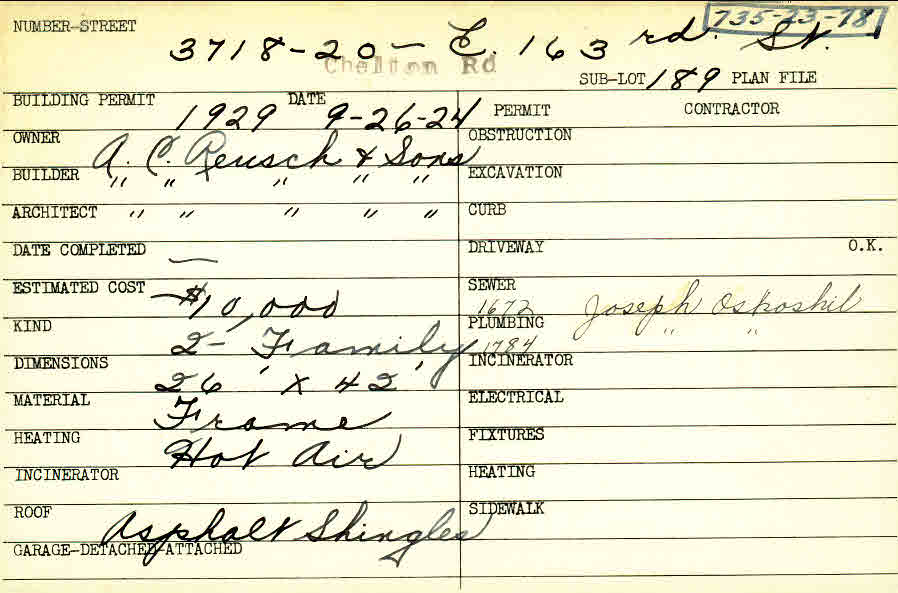 NUMBER-STREET 735-23-78
3718-20- E. 163 rd. St.
Chelton Rd
SUB-LOT 189 PLAN FILE
BUILDING PERMIT 1929 DATE 9-26-24 PERMIT CONTRACTOR
OWNER A. C. Reusch & Sons OBSTRUCTION
BUILDER " " " " " EXCAVATION
ARCHITECT " " " " " CURB
DATE COMPLETED — DRIVEWAY O.K.
ESTIMATED COST $10,000 SEWER 1672 Joseph
KIND 2- Family PLUMBING 1784 " "
DIMENSIONS 26' x 42' INCINERATOR
MATERIAL Frame ELECTRICAL
HEATING Hot Air FIXTURES
INCINERATOR HEATING
ROOF Asphalt Shingles SIDEWALK
GARAGE-DETACHED-ATTACHED